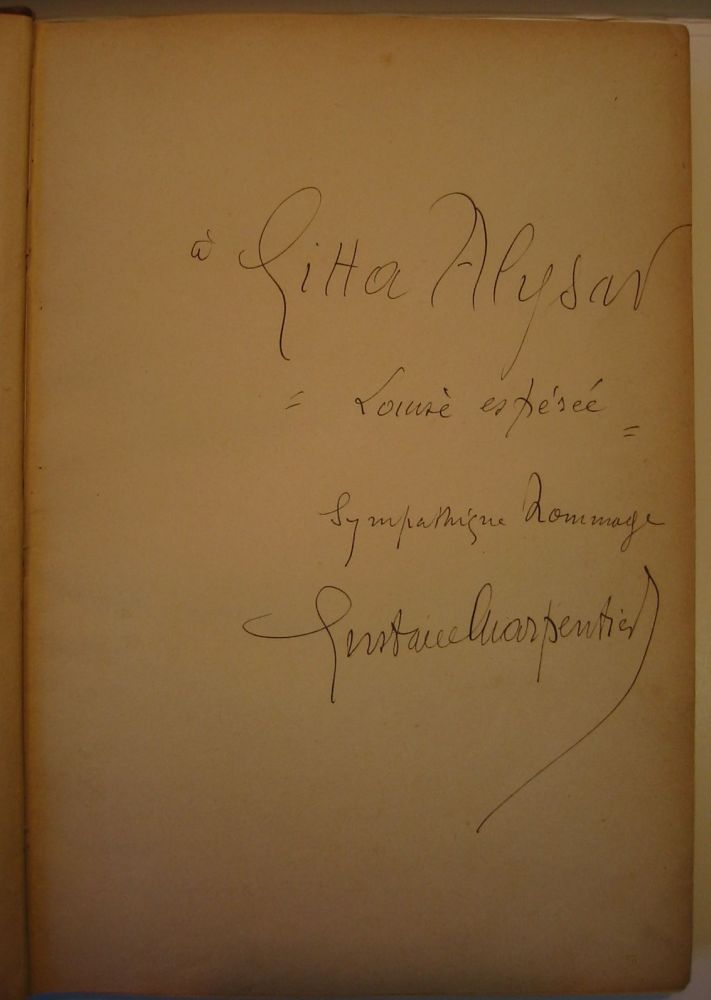 à Gitta Alpar
= Louise espérée =
Sympathique Hommage
Gustave Charpentier